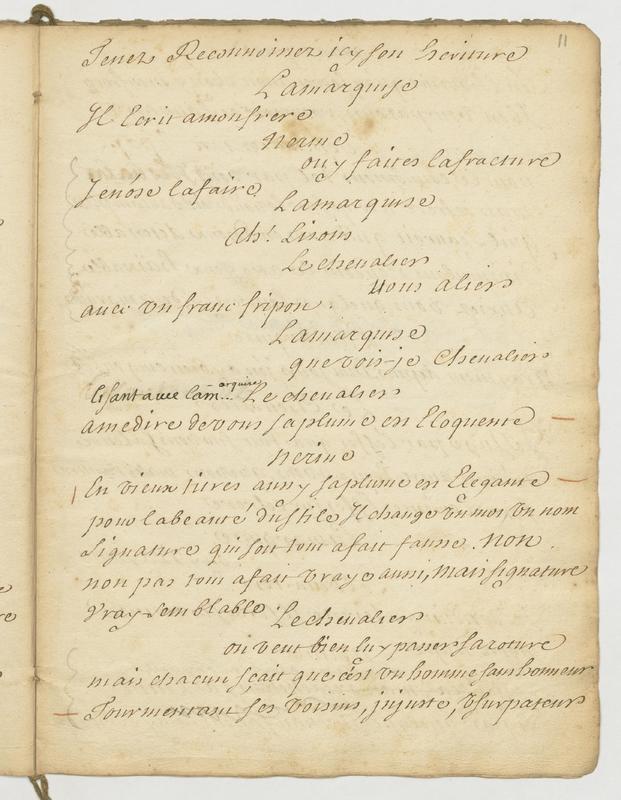 11
Tenez Reconnoissez icy son Ecriture
Lamarquise
Il Ecrit amonfrere
Nerine
ouy faites lafracture
Jenose lafaire
Lamarquise
Ah! Lisons
Le chevalier
vous aliez
avec un franc fripon.
Lamarquise
que vois-je Chevalier
lisant avec lam... arquise Le chevalier
amedire devous saplume est Eloquente
Nerine
En vieux titres aussy saplume est Elegante
pour labeauté dustile Il change un mot un nom
signature qui soit tout afait fausse. non
non pas tout afait vraye aussi, mais signature
vray-semblable
Le chevalier
on veut bien luy passer saroture
mais chacun sçait que c'est un homme sans honneur
Tourmentant ses voisins, injuste, usurpateur